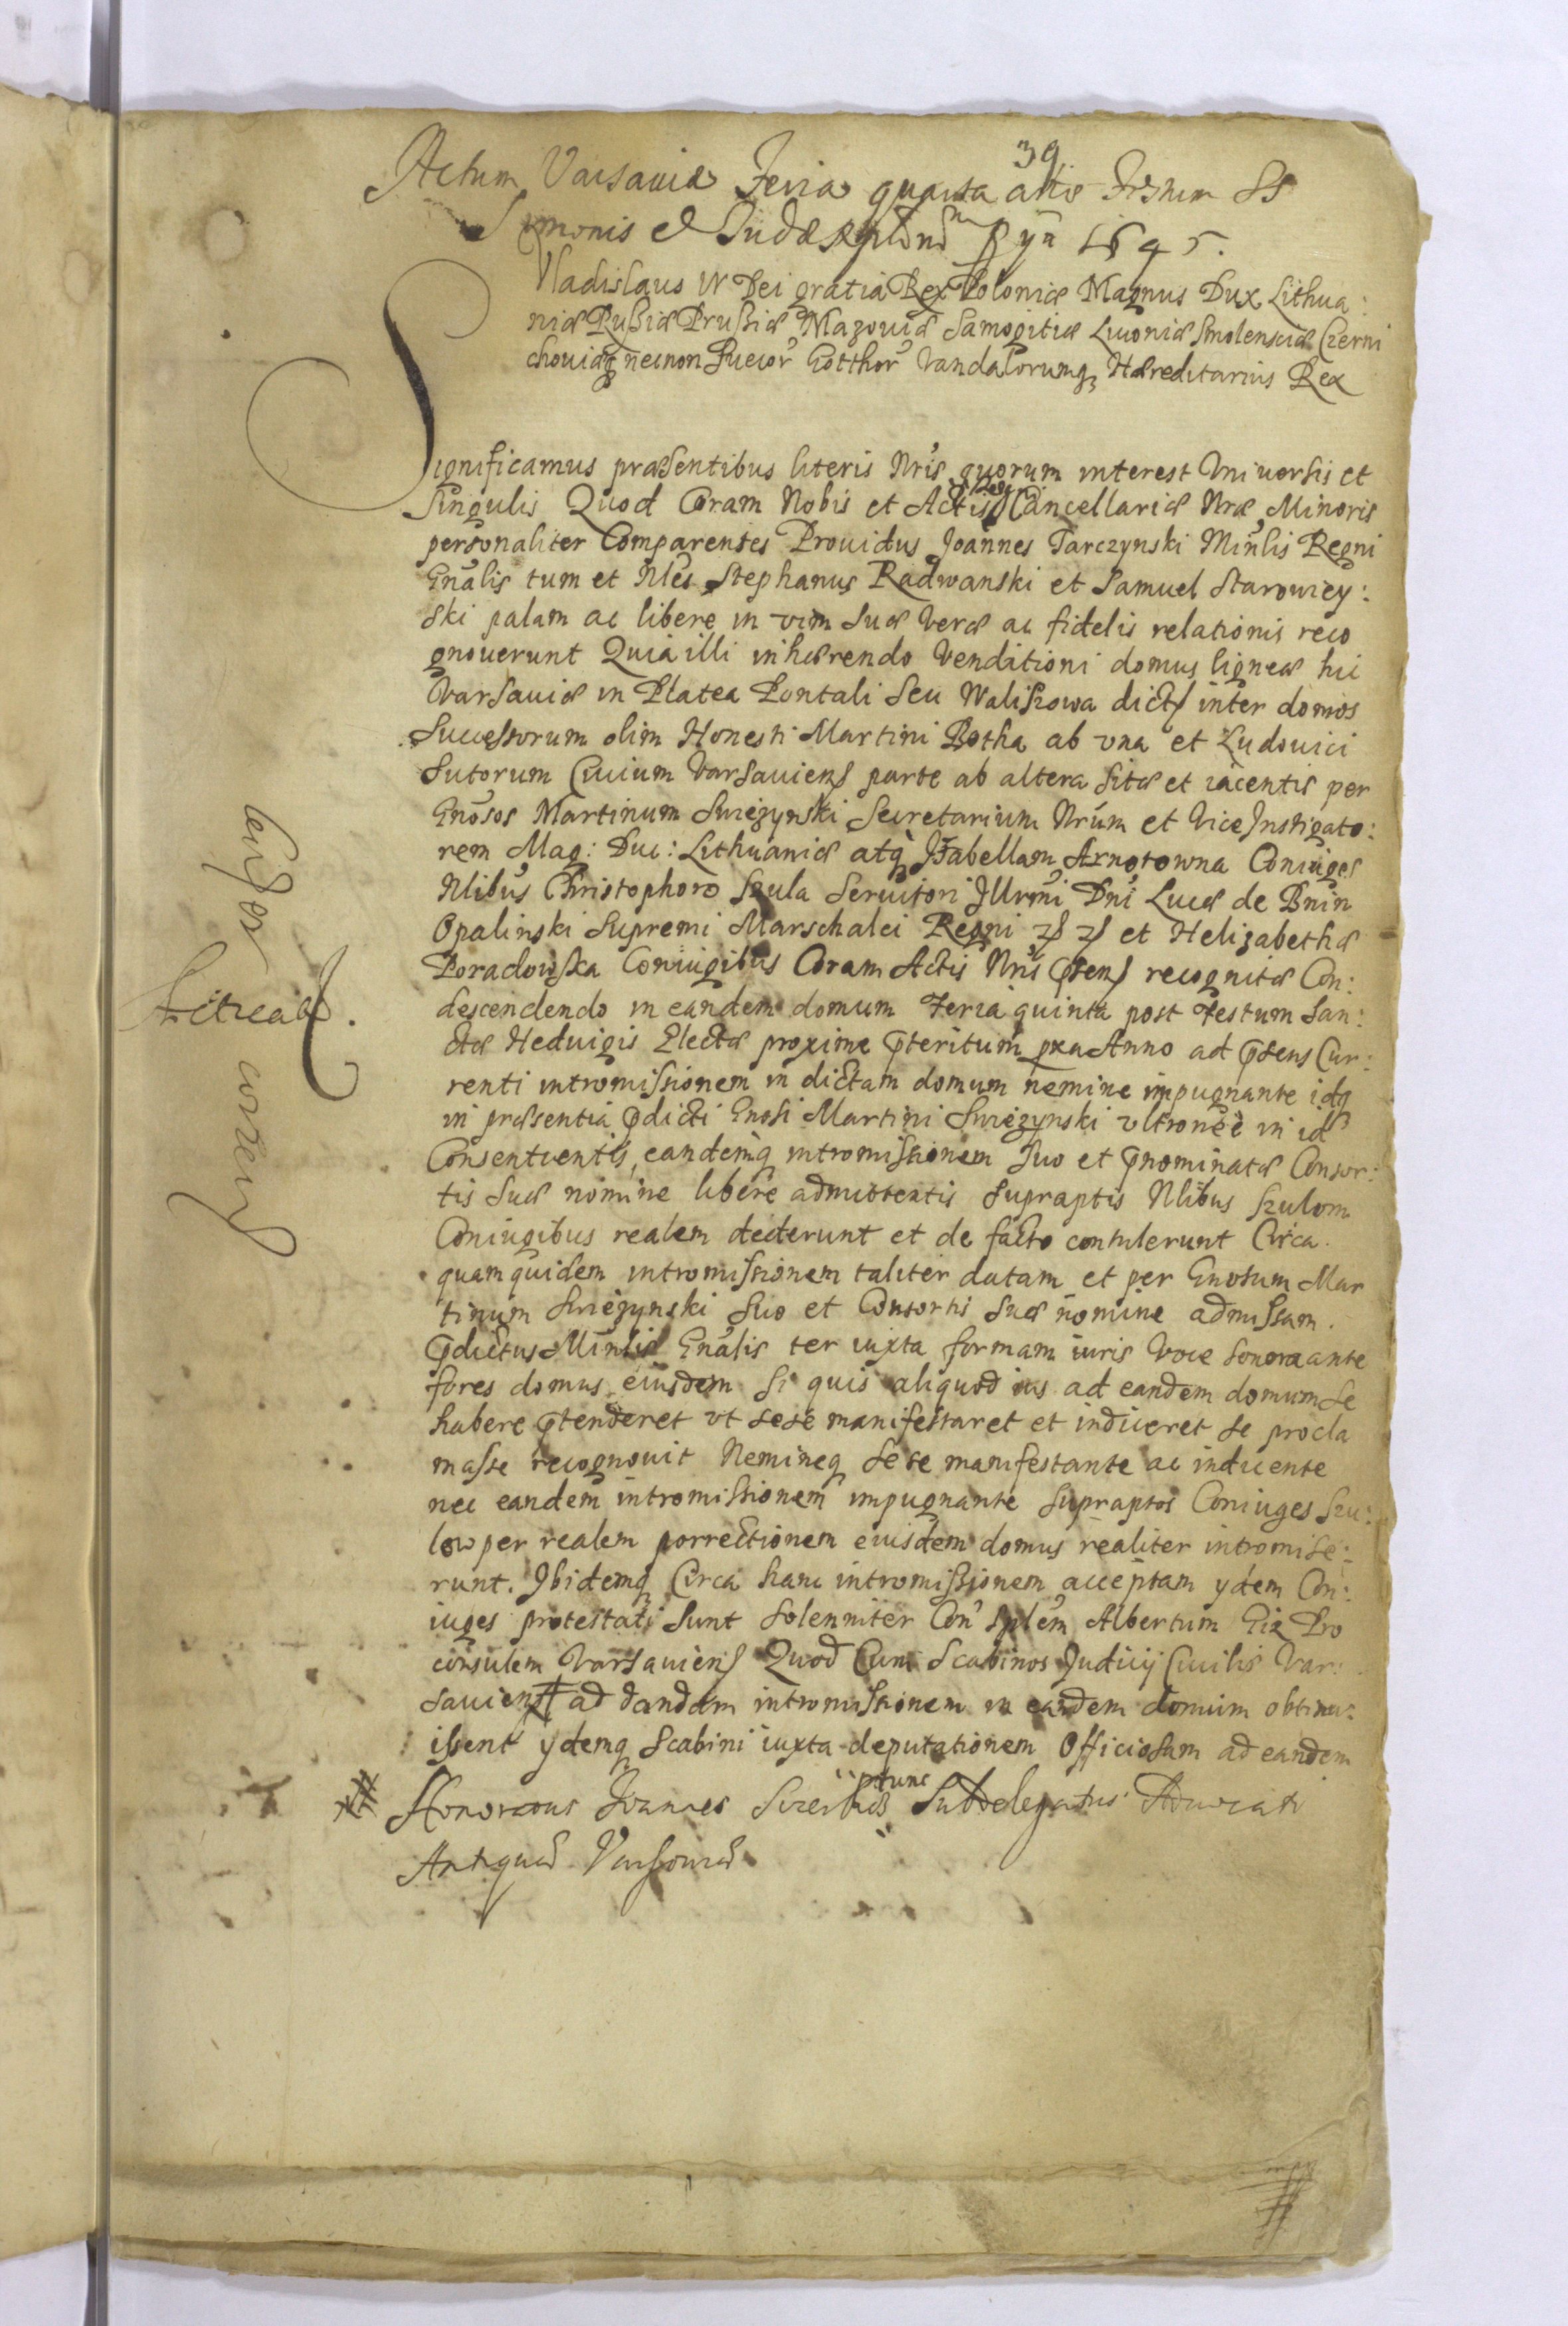 39
Actum Varsaviæ Feria quarta ante Festum SS
Symonis et Judæ Aplorum 1645.
Vladislaus IV Dei gratia Rex Poloniæ Magnus Dux Lithua:
niæ Rußiæ Prußiæ Mazoviæ Samogitiæ Livoniæ Smolensciæ Czerni
choviæq necnon Suecor Gotthor Vandalorumq Hæreditarius Rex
Significamus præsentibus literis Nris quorum interest Universis et
Singulis Quod Coram Nobis et Actis Cancellariæ Nræ Minoris
personaliter Comparentes Providus Joannes Tarczynski Minlis Regni
Gnalis tum et Nles Stephanus Radwanski et Samuel Starowiey:
ski palam ac libere in vim suæ veræ ac fidelis relationis reco
gnoverunt Quia illi inhærendo Venditioni domus ligneæ hic
Varsaviæ in Platea Pontali seu Waliszowa dict inter domos
Successorum olim Honesti Martini Botha ab vna et Ludovici
Sutorum Civium Varsaviens parte ab altera sitæ et iacentis per
Gnosos Martinum Swiezynski Secretarium Nrum et Vice Instigato:
rem Mag: Duc: Lithuaniæ atq Isabellam Arnotowna Coniuges
Nlibus Christophoro Szula Servitori Illrmi Dni Lucæ de Bnin
Opalinski Supremi Marschalci Regni et Helizabethæ
Poradowska Coniugibus Coram Actis Nris pnten recognitæ Con:
descendendo in eandem domum Feria quinta post Festum San:
ctæ Hedvigis Electæ proxime pteritum Anno ad psens Cur:
renti intromissionem in dictam domum nemine impugnante idq
in præsentia pdicti Gnosi Martini Swiezynski vltronee in id
Consentientis, eandemq intromissionem suo et pnominatæ Consor:
tis suæ nomine libere admittentis supraptis Nlibus Szulom
Coniugibus realem dederunt et de facto contulerunt Circa
quam quidem intromissionem taliter datam et per Gnosum Mar
tinum Swiezynski suo et Consortis suæ nomine admissam.
pdictus Minlis Gnalis ter iuxta formam iuris voce sonora ante
fores domus eiusdem si quis aliquod ius ad eandem domum se
habere ptenderet vt sese manifestaret et indiceret se procla
masse recognovit Nemineq sese manifestante ac indicente
nec eandem intromissionem impugnante supraptos Coniuges Szu:
low per realem porrectionem eiusdem domus realiter intromise:
runt. Ibidemq Circa hanc intromissionem acceptam ydem Con:
iuges protestati sunt solenniter Con Splem Albertum Giz Pro
consulem Varsaviens Quod Cum Scabinos Judicij Civilis Var:
saviens # ad dandam intromissionem in eandem domum obtinu:
issent ydemq Scabini iuxta deputationem Officiosam ad eandem
# Honoratus Joannes ptunc Subdelegatus Advocati
Antiquæ Varsoviæ